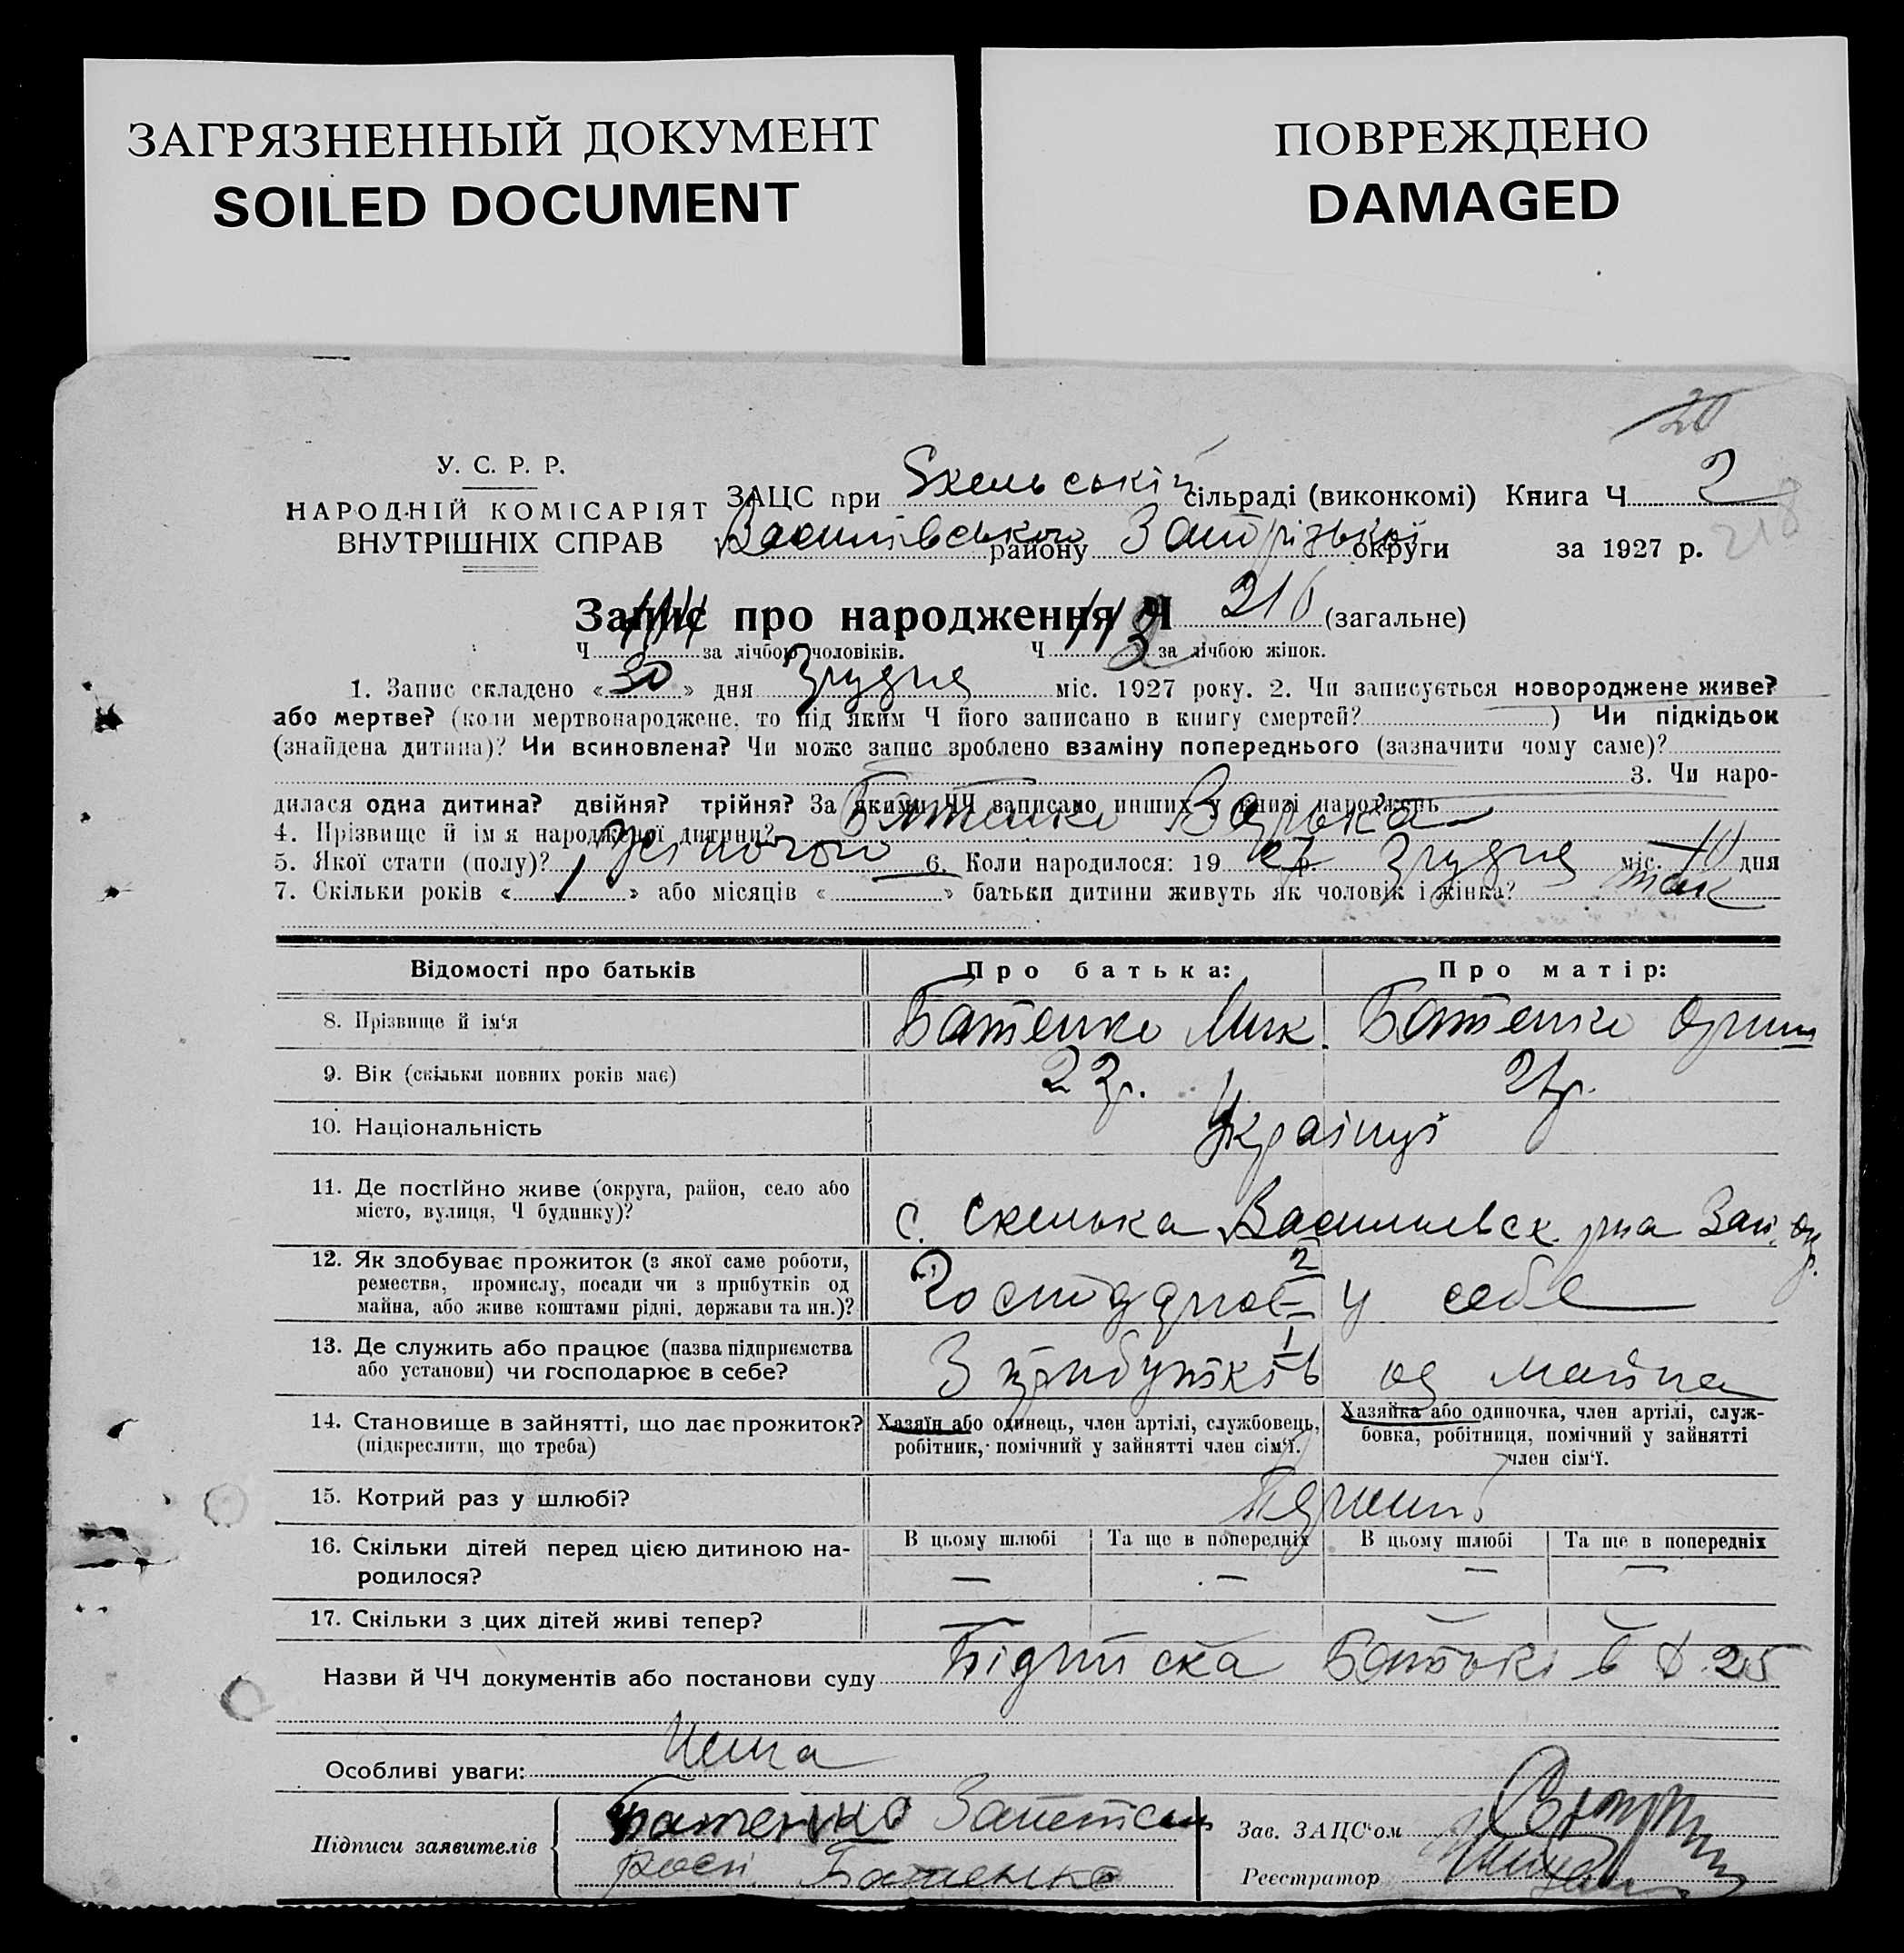 ЗАГРЯЗНЕННЫЙ ДОКУМЕНТ
SOILED DOCUMENT
ПОВРЕЖДЕНО
DAMAGED
20
У. С. Р. Р.
НАРОДНІЙ КОМІСАРІЯТ
ВНУТРІШНІХ СПРАВ
ЗАЦС при Скельській сільраді (виконкомі) Книга Ч. 2
Василівського району Запорізької округи за 1927 р.
218
Запис про народження Ч 216 (загальне)
Ч за лічбою чоловіків. Ч 113 за лічбою жінок.
1. Запис складено «30» дня Грудня міс. 1927 року. 2. Чи записується новороджене живе?
або мертве? (коли мертвонароджене, то під яким Ч його записано в книгу смертей? ) Чи підкідьок
(знайдена дитина)? Чи всиновлена? Чи може запис зроблено взаміну попереднього (зазначити чому саме)?
3. Чи наро-
дилася одна дитина? двійня? трійня? За якими ЧЧ записано инших у книзі народжень
4. Прізвище й ім'я народженої дитини? Батенко
5. Якої стати (полу)? Жіночого 6. Коли народилося: 19 27 р. Грудня міс. 10 дня
7. Скільки років «1» або місяців « » батьки дитини живуть як чоловік і жінка? так
Відомості про батьків
Про батька:
Про матір:
8. Прізвище й ім'я
Батенко Мик.
Батенко Орина
9. Вік (скільки повних років має)
22 р.
21 р.
10. Національність
Українці
11. Де постійно живе (округа, район, село або
місто, вулиця, Ч будинку)?
с. Скелька Васильевск. р-на Зап. окр.
12. Як здобуває прожиток (з якої саме роботи,
ремества, промислу, посади чи з прибутків од
майна, або живе коштами рідні, держави та ин.)?
2
Господарює у себе
13. Де служить або працює (назва підприємства
або установи) чи господарює в себе?
1
З прибутків од майна
14. Становище в зайнятті, що дає прожиток?
(підкреслити, що треба)
Хазяїн або одинець, член артілі, службовець,
робітник, помічний у зайнятті член сім'ї.
Хазяйка або одиночка, член артілі, служ-
бовка, робітниця, помічний у зайнятті
член сім'ї.
15. Котрий раз у шлюбі?
16. Скільки дітей перед цією дитиною на-
родилося?
В цьому шлюбі
Та ще в попередніх
В цьому шлюбі
Та ще в попередніх
—
—
—
—
17. Скільки з цих дітей живі тепер?
Назви й ЧЧ документів або постанови суду Підписка Батьків 25
Особливі уваги: Нема
Підписи заявителів
Батенко
Батенко
Зав. ЗАЦС'ом
Реєстратор